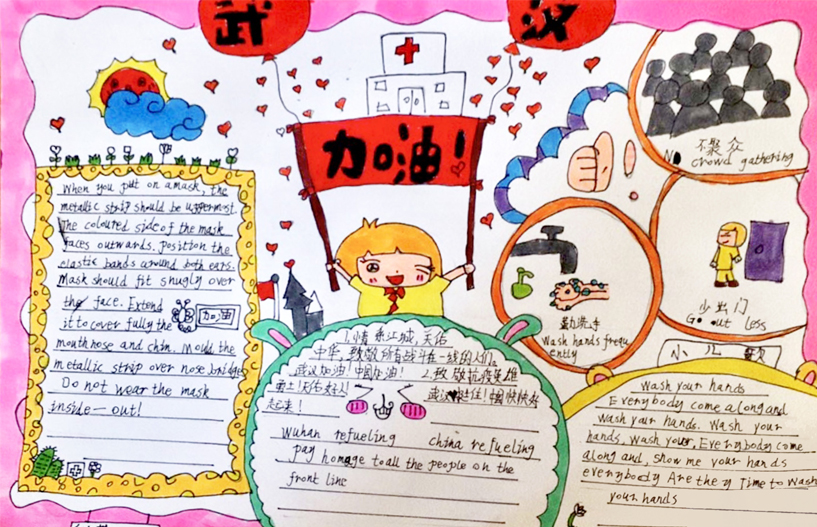 武汉
加油!
When you put on a mask, the
metallic strip should be uppermost.
The coloured side of the mask
faces outwards. position the
elastic bands around both ears.
Mask should fit snugly over
the face. Extend
it to cover fully the
mouth nose and chin. Mould the
metallic strip over nose bridge
Do not wear the mask
inside-out!
加油
1.情系江城,天佑
中华,致敬所有战斗在一线的人们。
武汉加油!中国加油! 2.致敬抗疫英雄
起来!
Wuhan refueling china refueling
pay homage to all the people on the
front line
不聚众
No crowd gathering
勤洗手
Wash hands frequ
ently
少出门
Go out less
小儿歌
Wash your hands
Everybody come along and
wash your hands. Wash your
hands, wash your, Everybody come
along and, show me your hands
everybody Are they Time to wash
your hands